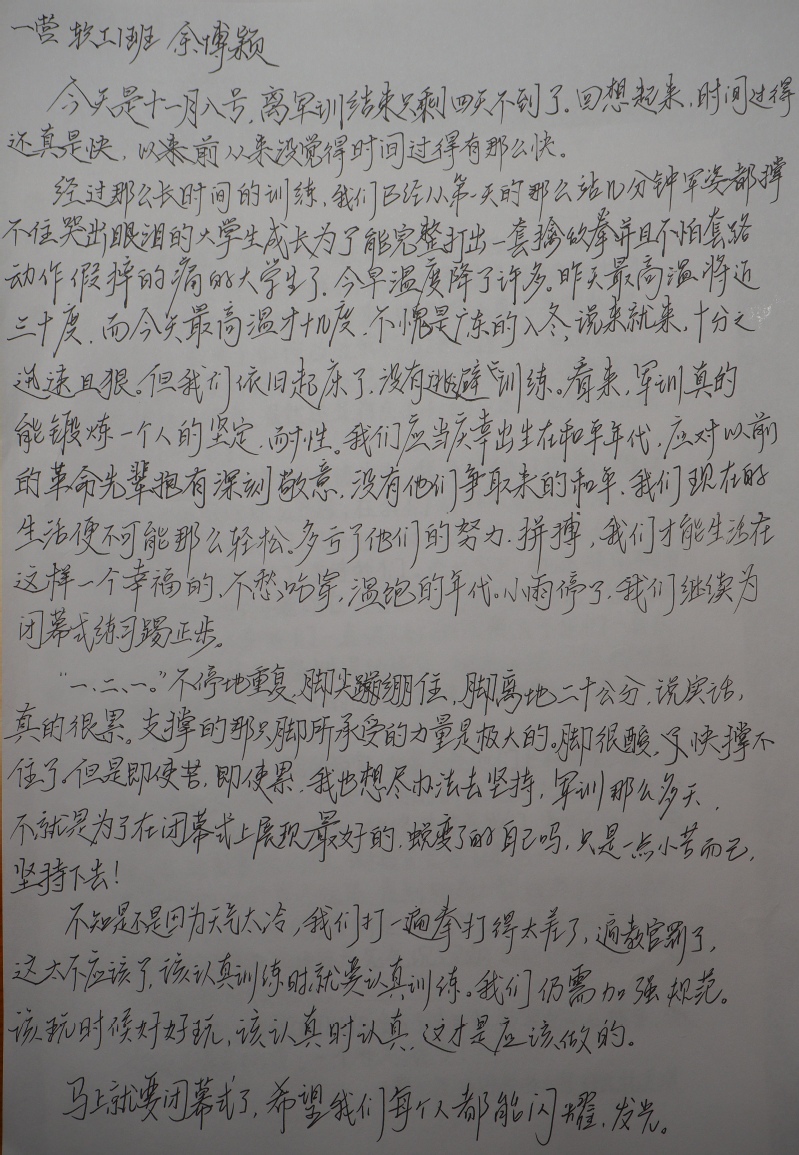 一营 软工1班 余博颖
今天是十一月八号，离军训结束只剩四天不到了。回想起来，时间过得
还真是快，以来前从来没觉得时间过得有那么快。
经过那么长时间的训练，我们已经从第一天的那么站几分钟军姿都撑
不住哭出眼泪的大学生成长为了能完整打出一套擒敌拳并且不怕套路
动作假摔的痛的大学生了。今早温度降了许多。昨天最高温将近
三十度，而今天最高温才十几度，不愧是广东的入冬，说来就来，十分之
迅速且狠。但我们依旧起床了，没有逃避训练。看来，军训真的
能锻炼一个人的坚定、耐性。我们应当庆幸出生在和平年代，应对以前
的革命先辈抱有深刻敬意，没有他们争取来的和平，我们现在的
生活便不可能那么轻松。多亏了他们的努力、拼搏，我们才能生活在
这样一个幸福的、不愁吃穿，温饱的年代。小雨停了，我们继续为
闭幕式练习踢正步。
“一、二、一。”不停地重复，脚尖蹦绷住，脚离地二十公分，说实话，
真的很累。支撑的那只脚所承受的力量是极大的。脚很酸，快撑不
住了。但是即使苦，即使累，我也想尽办法去坚持，军训那么多天，
不就是为了在闭幕式上展现最好的，蜕变了的自己吗，只是一点小苦而已，
坚持下去！
不知是不是因为天气太冷，我们打一遍拳打得太差了，遍教官罚了，
这太不应该了，该认真训练时就要认真训练。我们仍需加强规范。
该玩时候好好玩，该认真时认真，这才是应该做的。
马上就要闭幕式了，希望我们每个人都能闪耀、发光。